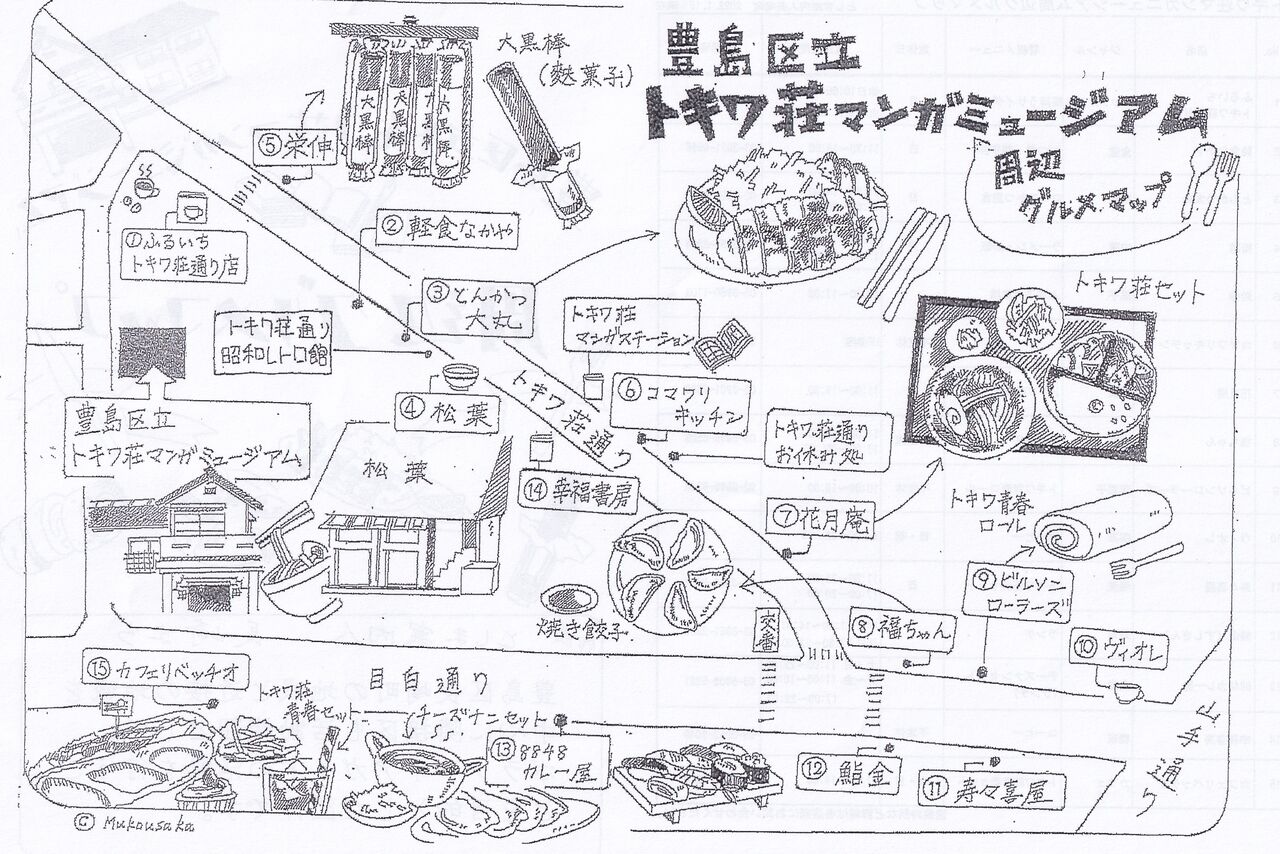 豊島区立
トキワ荘マンガミュージアム
周辺
グルメマップ
大黒棒
(麩菓子)
大黒棒
大黒棒
大黒棒
大黒棒
⑤栄伸
①ふるいち
トキワ荘通り店
②軽食なかや
③とんかつ
大丸
トキワ荘
マンガステーション
トキワ荘セット
トキワ荘通り
昭和レトロ館
④松葉
トキワ荘通り
⑥コマワリ
キッチン
トキワ荘通り
お休み処
豊島区立
トキワ荘マンガミュージアム
松葉
⑭幸福書房
⑦花月庵
トキワ青春
ロール
⑨ビルソン
ローラーズ
焼き餃子
交番
⑧福ちゃん
⑩ヴィオレ
⑮カフェリベッチオ
目白通り
トキワ荘
青春セット
チーズナンセット
⑬8848
カレー屋
⑫鮨金
⑪寿々喜屋
山手通り
© Mukousaka